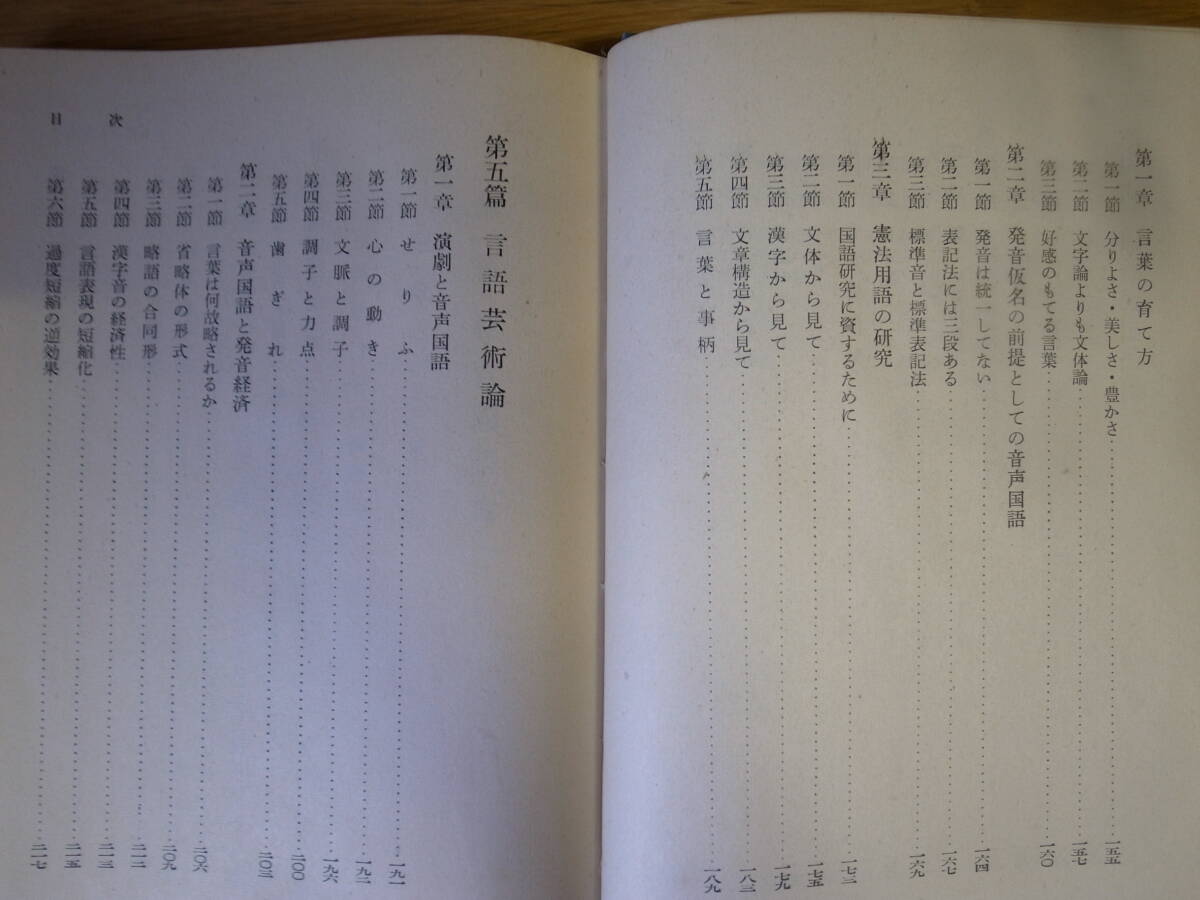 第一章 言葉の育て方
第一節 分りよさ・美しさ・豊かさ 一五五
第二節 文字論よりも文体論 一五七
第三節 好感のもてる言葉 一六〇
第二章 発音仮名の前提としての音声国語
第一節 発音は統一してない 一六四
第二節 表記法には三段ある 一六七
第三節 標準音と標準表記法 一六九
第三章 憲法用語の研究
第一節 国語研究に資するために 一七二
第二節 文体から見て 一七五
第三節 漢字から見て 一七九
第四節 文章構造から見て 一八三
第五節 言葉と事柄 一八九
第五篇 言語芸術論
第一章 演劇と音声国語
第一節 せりふ 一九一
第二節 心の動き 一九二
第三節 文脈と調子 一九六
第四節 調子と力点 二〇〇
第五節 歯ぎれ 二〇三
第二章 音声国語と発音経済
第一節 言葉は何故略されるか 二〇六
第二節 省略体の形式 二〇九
第三節 略語の合同形 二一二
第四節 漢字音の経済性 二一三
第五節 言語表現の短縮化 二一五
第六節 過度短縮の逆効果 二一七
目次